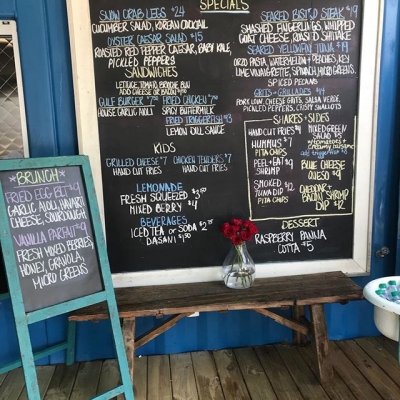 SPECIALS
SNOW CRAB LEGS $24
CUCUMBER SALAD,
OYSTER CAESAR SALAD $15
ROASTED RED PEPPER CAESAR, BABY KALE,
PICKLED PEPPERS
SANDWICHES
LETTUCE TOMATO BRIOCHE BUN
ADD CHEESE OR BACON
GULF BURGER FRIED CHICKEN
HOUSE GARLIC MAYO SPICY BUTTERMILK
FRIED TRIGGERFISH
LEMON DILL SAUCE
KIDS
GRILLED CHEESE $7 CHICKEN TENDERS $7
HAND CUT FRIES HAND CUT FRIES
LEMONADE
FRESH SQUEEZED $3.50
MIXED BERRY $4
BEVERAGES
ICED TEA OR SODA $2.75
DASANI $1.50
SEARED BISTRO STEAK $19
SMASHED FINGERLINGS, WHIPPED
GOAT CHEESE, ROASTED SHIITAKE
SEARED YELLOWFIN TUNA $19
ORZO PASTA, WATERMELON + PEACHES, KEY
LIME VINAIGRETTE, SPINACH, MICRO GREENS,
SPICED PECANS
GRITS + GRILLADES $14
PORK LOIN, CHEESE GRITS, SALSA VERDE,
PICKLED PEPPERS, CRISPY SHALLOTS
SHARES + SIDES
HAND CUT FRIES $4
HUMMUS $7
PITA CHIPS
PEEL + EAT $9
SHRIMP
SMOKED $12
TUNA DIP
PITA CHIPS
MIXED GREEN
SALAD $5
BLUE CHEESE
QUESO $9
CHEDDAR +
BACON SHRIMP
DIP $12
DESSERT
RASPBERRY PANNA
COTTA $5
BRUNCH
FRIED EGG BLT $9
GARLIC MAYO, HAVARTI
CHEESE, SOURDOUGH
VANILLA PARFAIT $9
FRESH MIXED BERRIES,
HONEY, GRANOLA,
MICRO GREENS